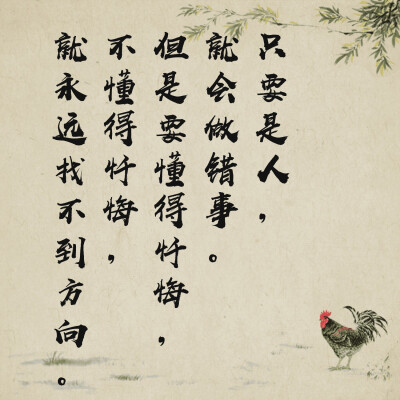 只要是人，
就会做错事。
但是要懂得忏悔，
不懂得忏悔，
就永远找不到方向。